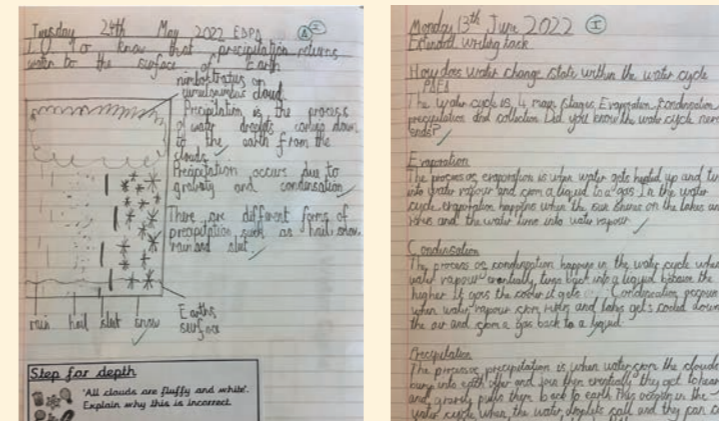 Tuesday 24th May 2022 EBPA I
L.O To know that precipitation returns
water to the surface of Earth
nimbostratus or
cumulonimbus cloud
Precipitation is the process
of water droplets coming down
to the earth from the
clouds.
Precipitation occurs due to
gravity and condensation
There are different forms of
precipitation such as hail, snow,
rain and sleet
Earths
surface
rain hail sleet snow
Step for depth
'All clouds are fluffy and white'.
Explain why this is incorrect.
Monday 13th June 2022 I
Extended writing task
How does water change state within the water cycle
The water cycle is 4 main stages, Evaporation, Condensation,
precipitation and collection. Did you know the water cycle never
ends?
Evaporation
The process of evaporation is when water gets heated up and
into water vapour and from a liquid to a gas. In the water
cycle, evaporation happens when the sun shines on the lakes and
and the water turns into water vapour
Condensation
The process of condensation happens in the water cycle when
water vapour eventually turns back into a liquid because the
higher it goes the cooler it gets. Condensation
when water vapour from rivers and lakes gets cooled down
the air and from a gas back to a liquid.
Precipitation
The process of precipitation is when water from the clouds
each other and join then eventually they get to
and gravity pulls them back to earth. This occurs in the
water cycle when the water droplets fall and they can